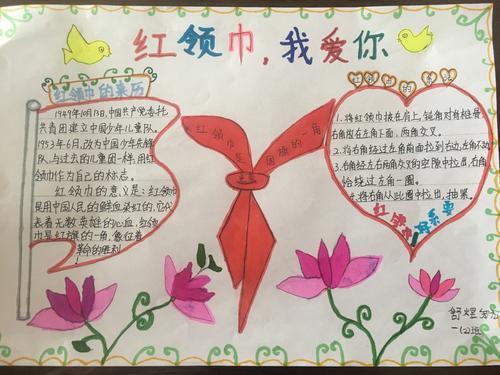 红领巾，我爱你
红领巾的来历
1949年10月13日，中国共产党委托
共青团建立中国少年儿童队。
1953年6月，改为中国少年先锋
队，与过去的儿童团一样，用红
领巾作为自己的标志。
红领巾的意义是：红领巾
是用中国人民的鲜血染红的，它代
表着无数英雄的心血，红领
巾是红旗的一角，象征着
革命的胜利
红领巾是国旗的一角
1.将红领巾披在肩上，钝角对脊柱骨，
右角放在左角下面，两角交叉。
2.将右角经过左角前面拉到右边，左角不动
3.右角经左右两角交叉的空隙中拉出，右角
恰绕过左角一圈。
4.将右角从此圈中拉出，抽紧。
红领巾
一(2)班